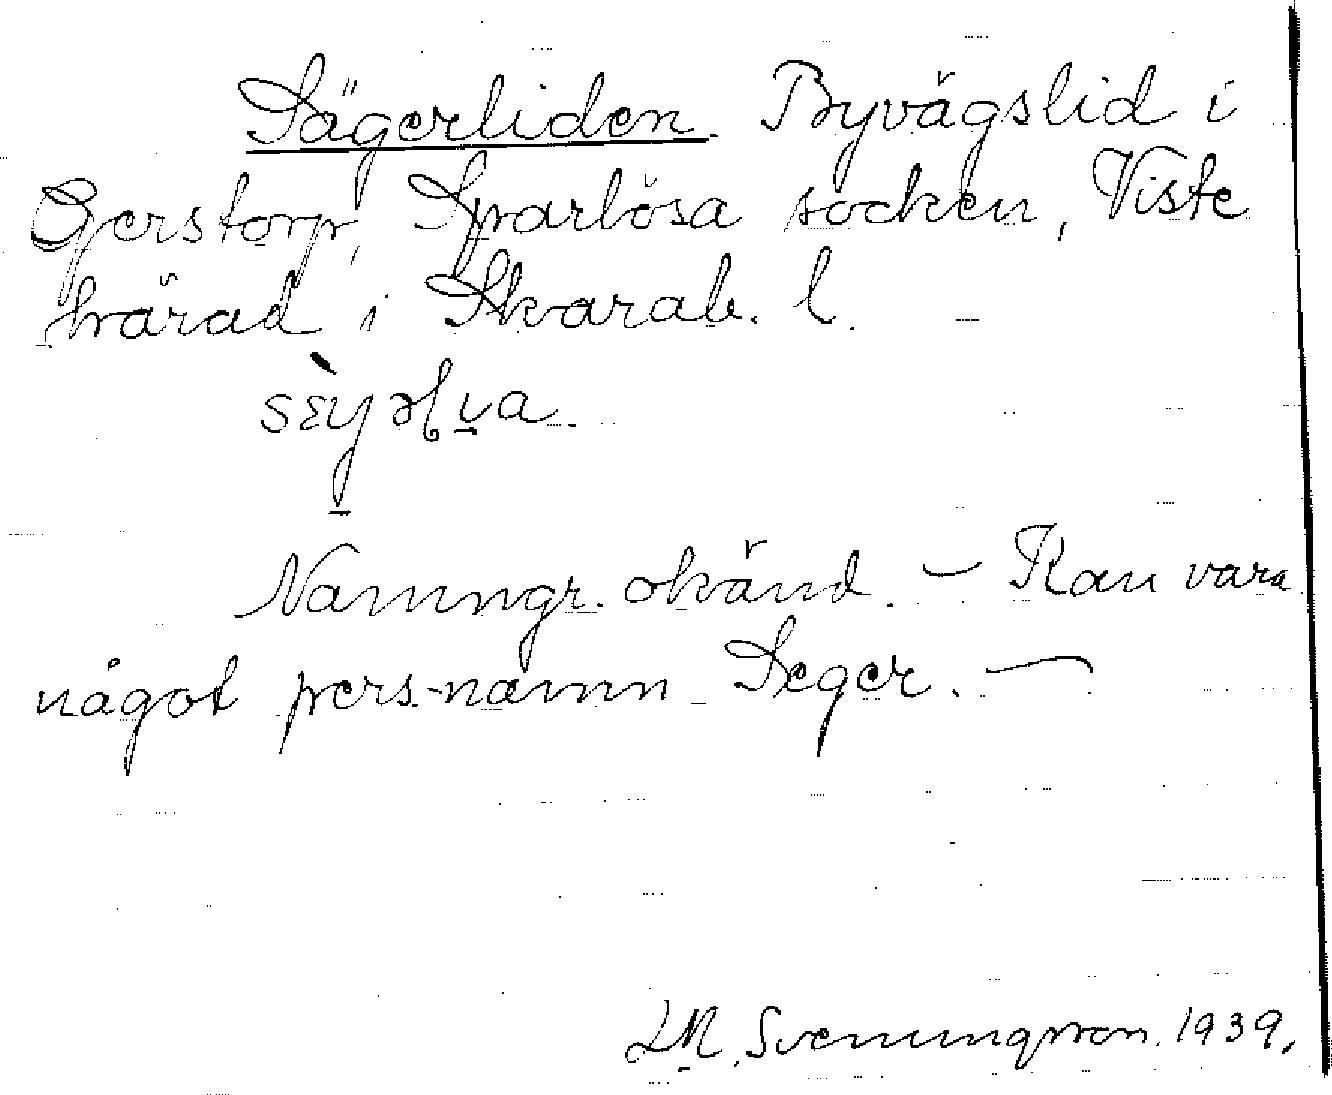 Sägerliden. Byvägslid i
Gerstorp, Sparlösa socken, Viste
härad i Skarab. l.
Namngr. okänd. — Kan vara
något pers.namn Seger. —
Svenungsson. 1939.